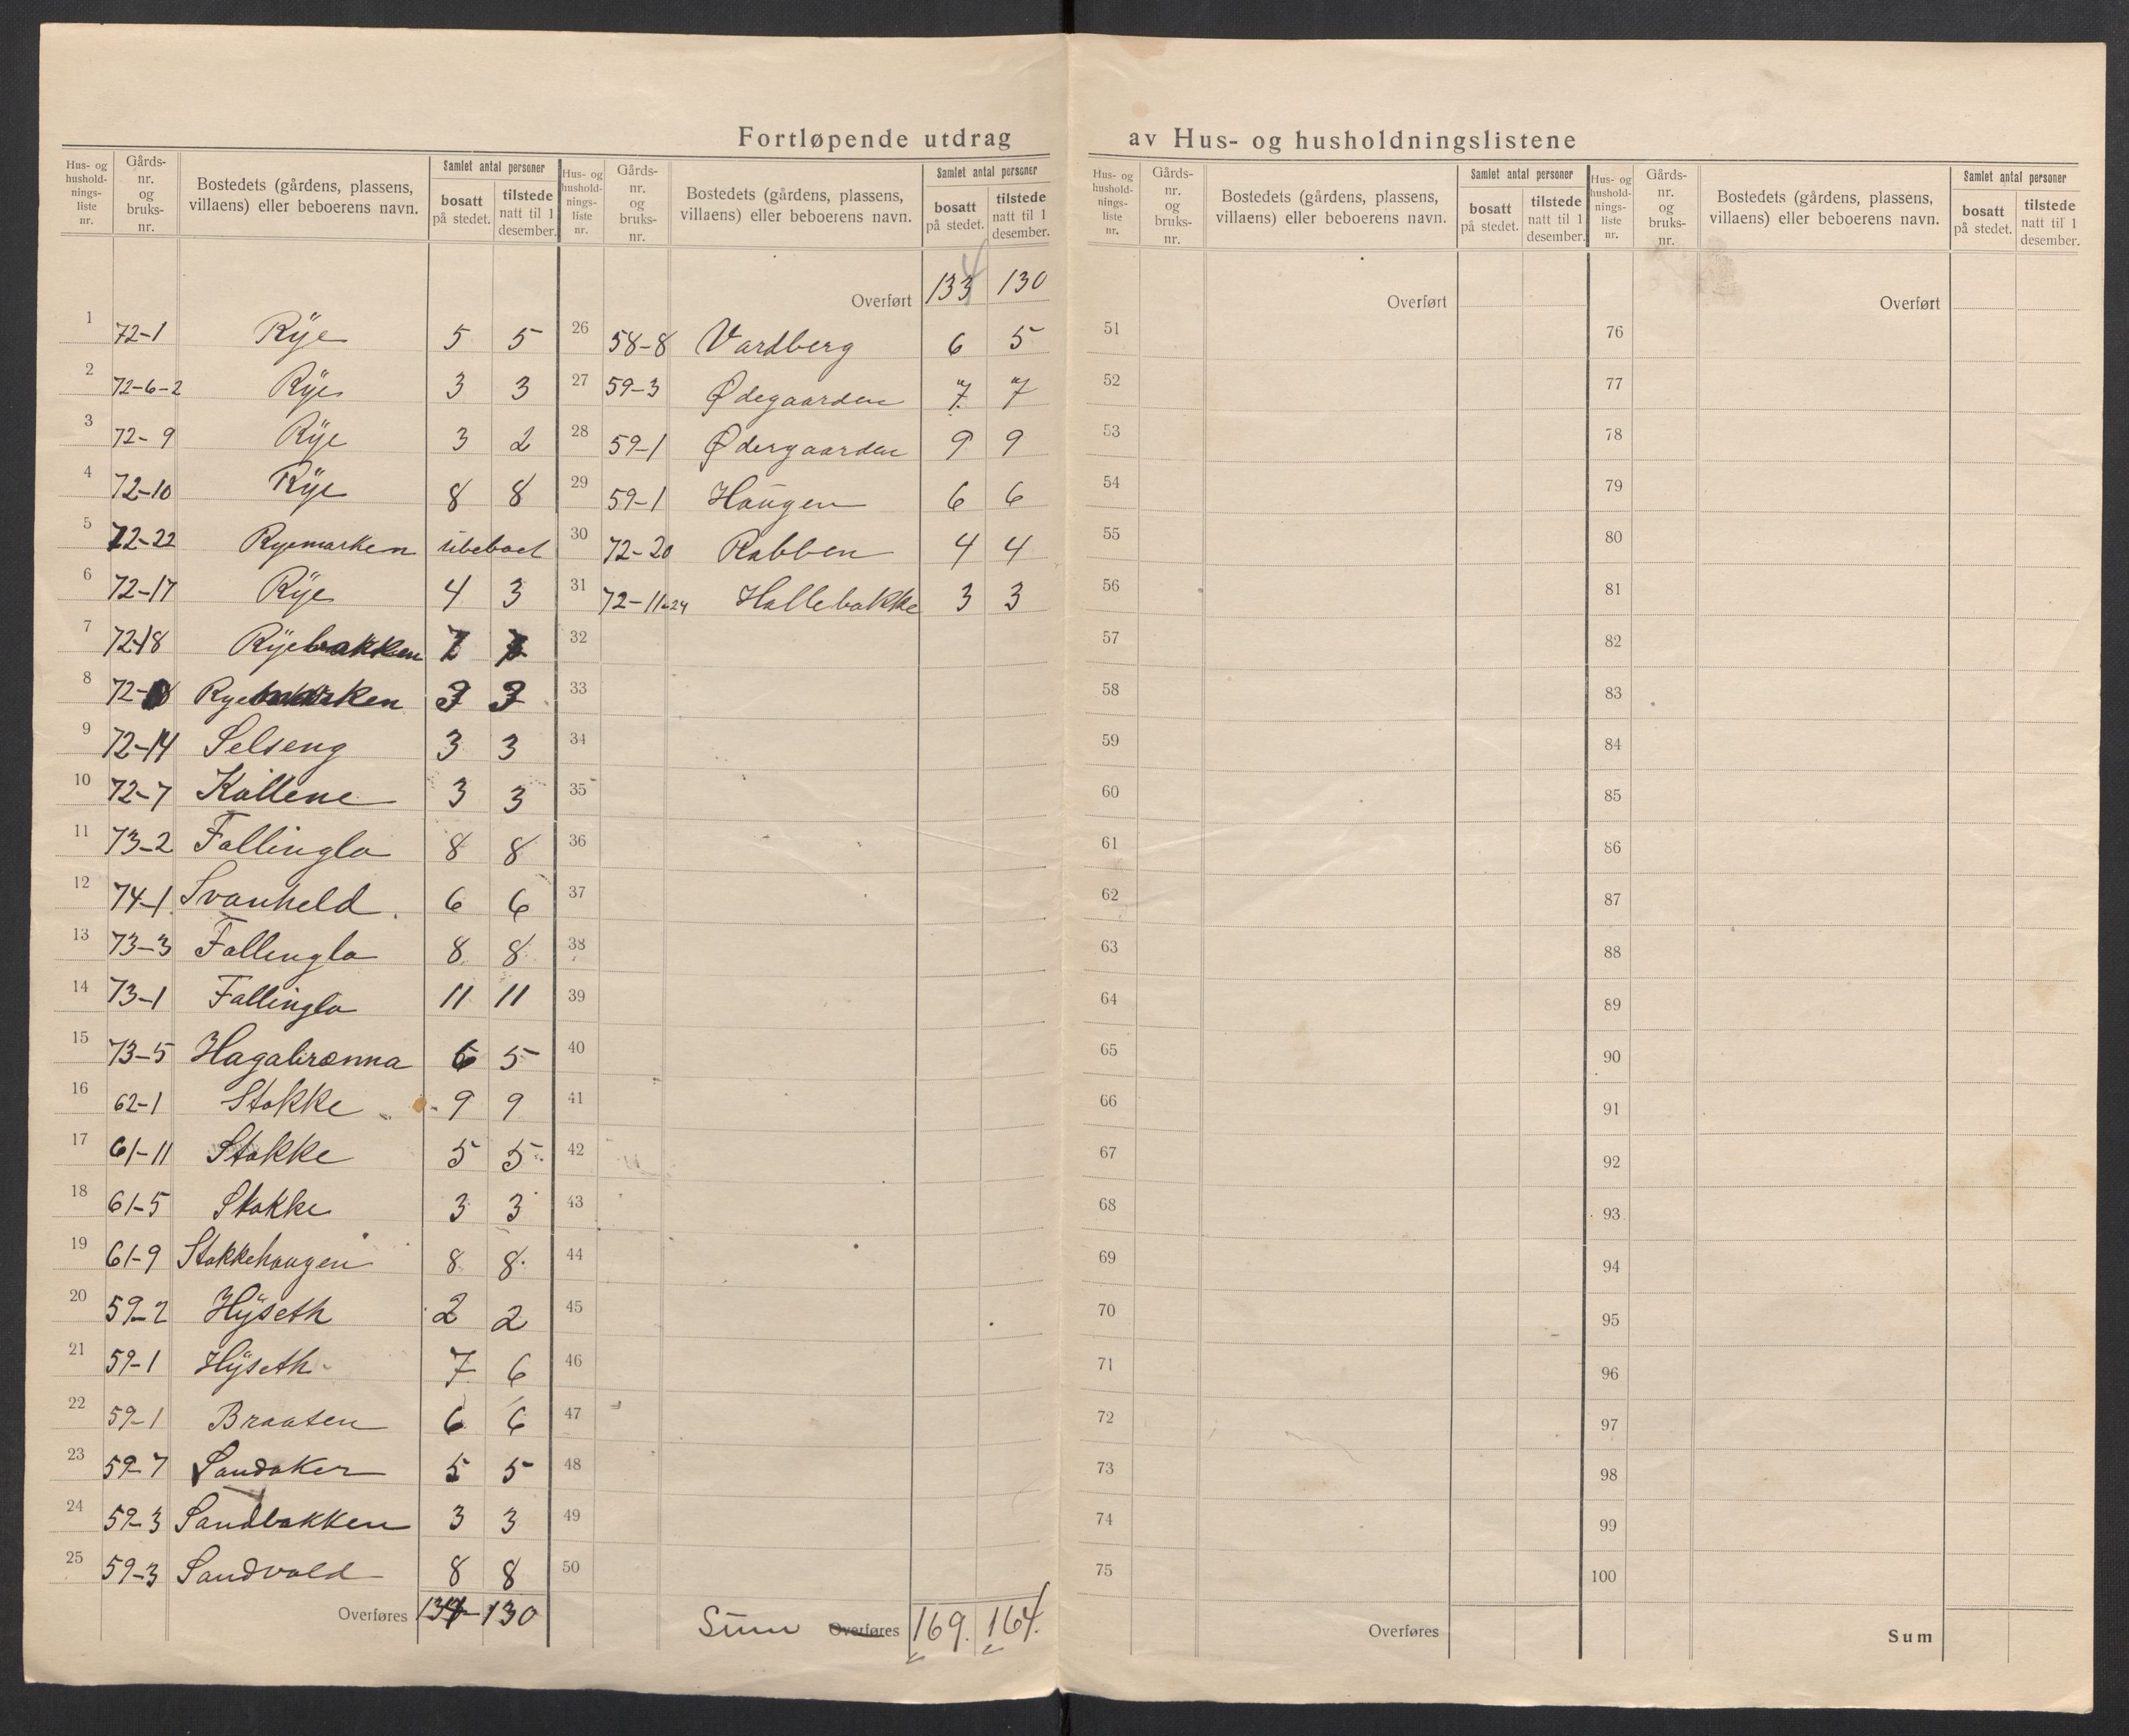 Fortløpende utdrag av Hus- og husholdningslistene
Hus- og hushold-nings-liste nr. Gårds-nr. og bruks-nr. Bostedets (gårdens, plassens, villaens) eller beboerens navn. Samlet antal personer bosatt på stedet. tilstede natt til 1 desember.
1 72-1 Rÿe 5 5
2 72-6-2 Rÿe 3 3
3 72-9 Rÿe 3 2
4 72-10 Rÿe 8 8
5 72-22 Ryemarken ubeboet
6 72-17 Rÿe 4 3
7 72-18 Rÿebakken
8 72- 3 3
9 72-14 Selseng 3 3
10 72-7 Kollene 3 3
11 73-2 Fallingla 8 8
12 74-1 Svanheld 6 6
13 73-3 Fallengla 8 8
14 73-1 Fallingla 11 11
15 73-5 Hagabrænna 6 5
16 62-1 Stokke 9 9
17 61-11 Stokke 5 5
18 61-5 Stokke 3 3
19 61-9 Stokkehaugen 8 8
20 59-2 Hÿseth 2 2
21 59-1 Hÿseth 7 6
22 59-1 Braaten 6 6
23 59-7 Sandaker 5 5
24 59-3 Sandbakken 3 3
25 59-3 Sandvold 8 8
Overføres 134 130
Hus- og hushold-nings-liste nr. Gårds-nr. og bruks-nr. Bostedets (gårdens, plassens, villaens) eller beboerens navn. Samlet antal personer bosatt på stedet. tilstede natt til 1 desember.
Overført 133 4 130
26 58-8 Vardberg 6 5
27 59-3 Ødegaarden 7 7
28 59-1 Ødergaarden 9 9
29 59-1 Haugen 6 6
30 72-20 Rabben 4 4
31 72-11-24 Hallebakke 3 3
32
33
34
35
36
37
38
39
40
41
42
43
44
45
46
47
48
49
50
Sum Overføres 169. 164.
Hus- og hushold-nings-liste nr. Gårds-nr. og bruks-nr. Bostedets (gårdens, plassens, villaens) eller beboerens navn. Samlet antal personer bosatt på stedet. tilstede natt til 1 desember.
Overført
51
52
53
54
55
56
57
58
59
60
61
62
63
64
65
66
67
68
69
70
71
72
73
74
75
Overføres
Hus- og hushold-nings-liste nr. Gårds-nr. og bruks-nr. Bostedets (gårdens, plassens, villaens) eller beboerens navn. Samlet antal personer bosatt på stedet. tilstede natt til 1 desember.
Overført
76
77
78
79
80
81
82
83
84
85
86
87
88
89
90
91
92
93
94
95
96
97
98
99
100
Sum